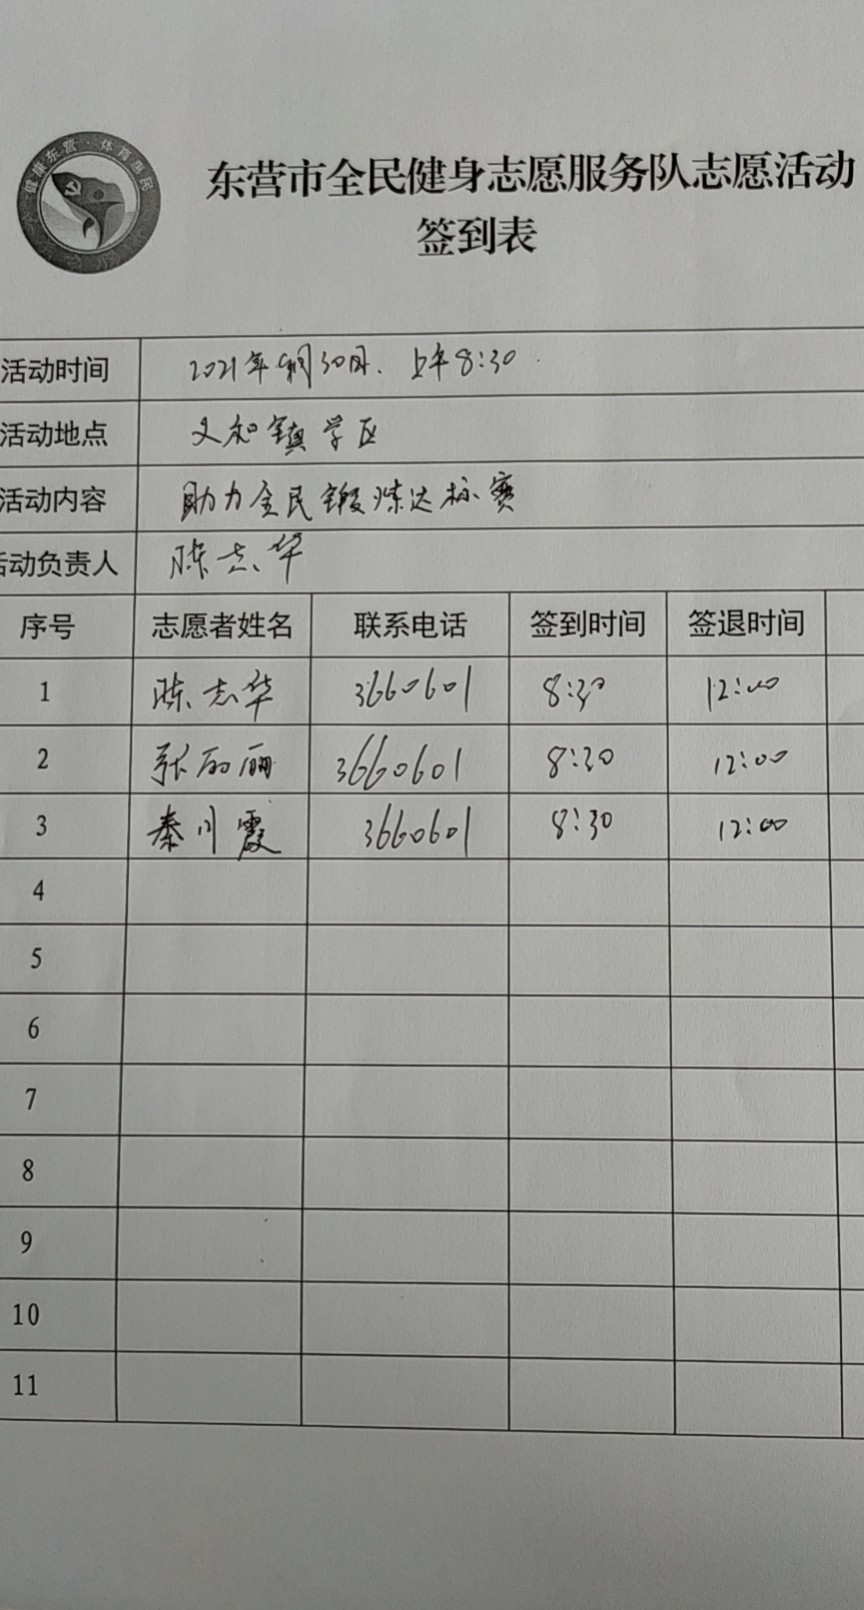 健康东营·体育惠民
东营市全民健身志愿服务队志愿活动
签到表
活动时间 2021年9月30日. 上午8:30
活动地点 义和镇学区
活动内容 助力全民锻炼达标赛
活动负责人 陈志华
序号 志愿者姓名 联系电话 签到时间 签退时间
1 陈志华 3660601 8:30 12:00
2 张丽丽 3660601 8:30 12:00
3 秦川霞 3660601 8:30 12:00
4
5
6
7
8
9
10
11